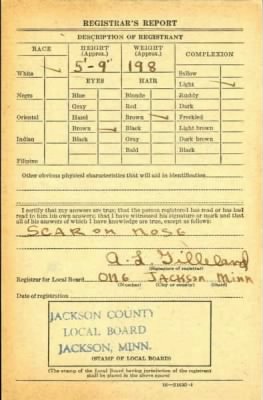 REGISTRAR'S REPORT
DESCRIPTION OF REGISTRANT
RACE HEIGHT (Approx.) WEIGHT (Approx.) COMPLEXION
5'-9" 198
White Sallow
EYES HAIR Light
Negro Blue Blonde Ruddy
Gray Red Dark
Oriental Hazel Brown Freckled
Brown Black Light brown
Indian Black Gray Dark brown
Bald Black
Filipino
Other obvious physical characteristics that will aid in identification
I certify that my answers are true; that the person registered has read or has had
read to him his own answers; that I have witnessed his signature or mark and that
all of his answers of which I have knowledge are true, except as follows:
SCAR ON NOSE
A. L. Gilleland
(Signature of registrar)
Registrar for Local Board ONE JACKSON MINN
(Number) (City or county) (State)
Date of registration
JACKSON COUNTY
LOCAL BOARD
JACKSON, MINN.
(STAMP OF LOCAL BOARD)
(The stamp of the Local Board having jurisdiction of the registrant
shall be placed in the above space)